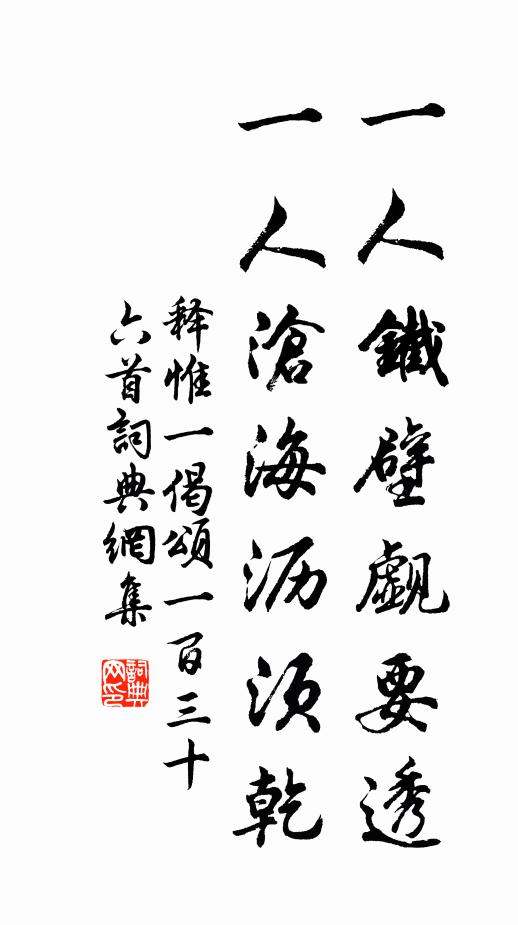 一人鐵壁覷要透
一人滄海沥须乾
释惟一偈頌一百三十
六首詞典網集
詞典网印